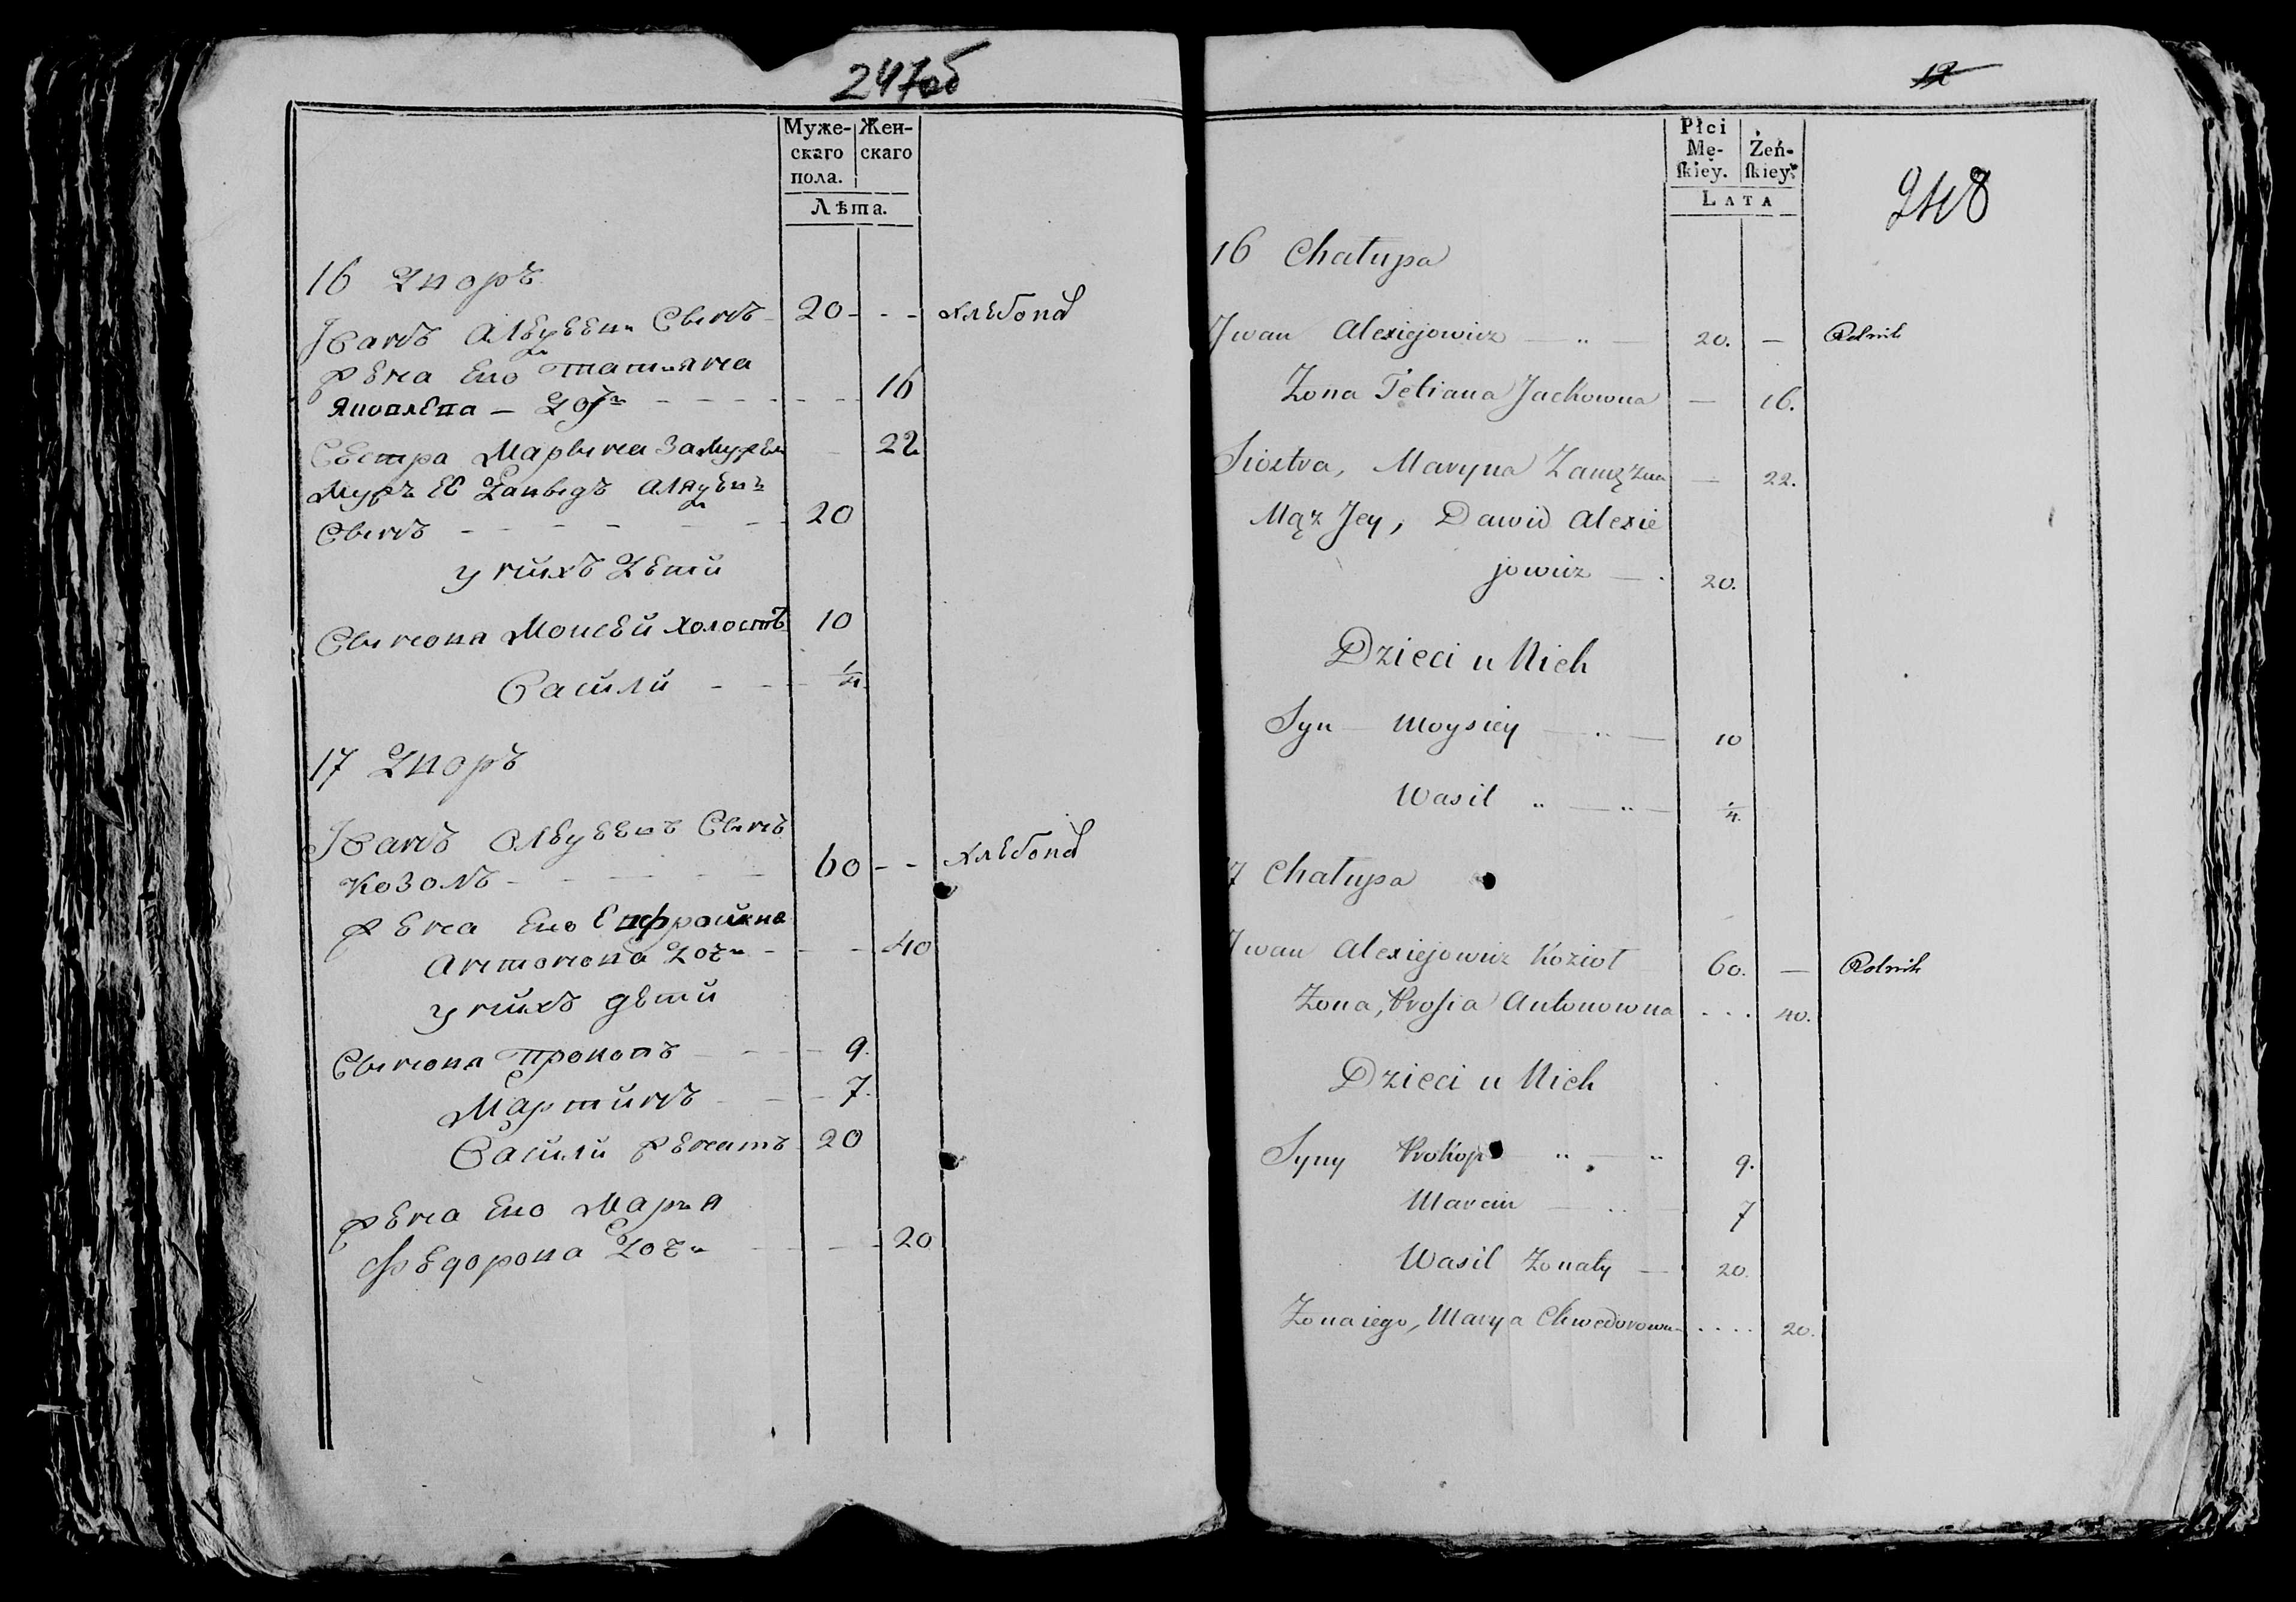 247об
Муже-
скаго
пола.
Жен-
скаго
Лѣта.
16 Дворъ
Иванъ Алексеевъ Сынъ 20 - - Хлебопа
Жена Ево Татьяна
Яковлева — Дочь - - - 16
Сестра Марьина Замужем - 22
Муж Ее Давыдъ Алексеевъ
Сынъ - - - - 20
у нихъ Дети
Сыновя Моисей холостъ 10
Василй - - 1/4
17 Дворъ
Иванъ Алексеевъ Сынъ
Козолъ - - - 60 - - Хлебопа
Жена Ево Ефросина
Антонова Дочь - - - 40
у нихъ дети
Сыновя Прокопъ - - 9.
Мартинъ - - 7.
Василй Женатъ 20
Жена Ево Марья
Федорова Дочь - - - 20
12
Płci
Mę-
skiey.
Żeń-
skiey.
LATA
248
16 Chałupa
Iwan Alexiejowicz — „ — 20. — Rolnik
Zona Tetiana Jackowna — 16.
Siostra, Maryna Zamężna — 22.
Mąż Jey, Dawid Alexie
jowicz — . 20.
Dzieci u Nich
Syn — Moysiey — . — 10
Wasil „ — „ — 1/4.
7 Chałupa
Iwan Alexiejowicz Kozioł 60. — Rolnik
Zona, Prosia Antonowna . . . 40.
Dzieci u Nich
Syny Prokop — „ — „ 9.
Marcin — „ — 7
Wasil Zonaty — 20.
Zona iego, Marya Chwedorowna . . . . 20.